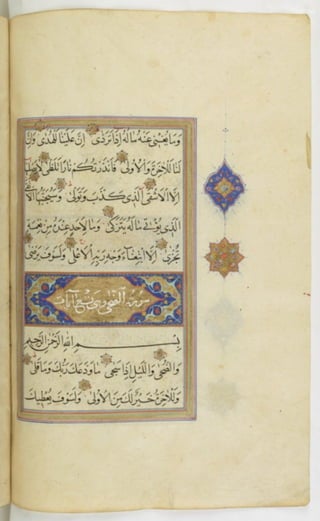 وَمَا يُغْنِي عَنْهُ مَالُهُ إِذَا تَرَدَّى إِنَّ عَلَيْنَا لَلْهُدَى وَإِنَّ
لَنَا لَلْآخِرَةَ وَالْأُولَى فَأَنْذَرْتُكُمْ نَارًا تَلَظَّى لَا يَصْلَيهَا
إِلَّا الْأَشْقَى الَّذِي كَذَّبَ وَتَوَلَّى وَسَيُجَنَّبُهَا الْأَتْقَى
الَّذِي يُؤْتِي مَالَهُ يَتَزَكَّى وَمَا لِأَحَدٍ عِنْدَهُ مِنْ نِعْمَةٍ
تُجْزَى إِلَّا ابْتِغَاءَ وَجْهِ رَبِّهِ الْأَعْلَى وَلَسَوْفَ يَرْضَى
سورة الضحى وهى آيات
بِسْمِ اللَّهِ الرَّحْمَنِ الرَّحِيمِ
وَالضُّحَى وَاللَّيْلِ إِذَا سَجَى مَا وَدَّعَكَ رَبُّكَ وَمَا قَلَى
وَلَلْآخِرَةُ خَيْرٌ لَكَ مِنَ الْأُولَى وَلَسَوْفَ يُعْطِيكَ